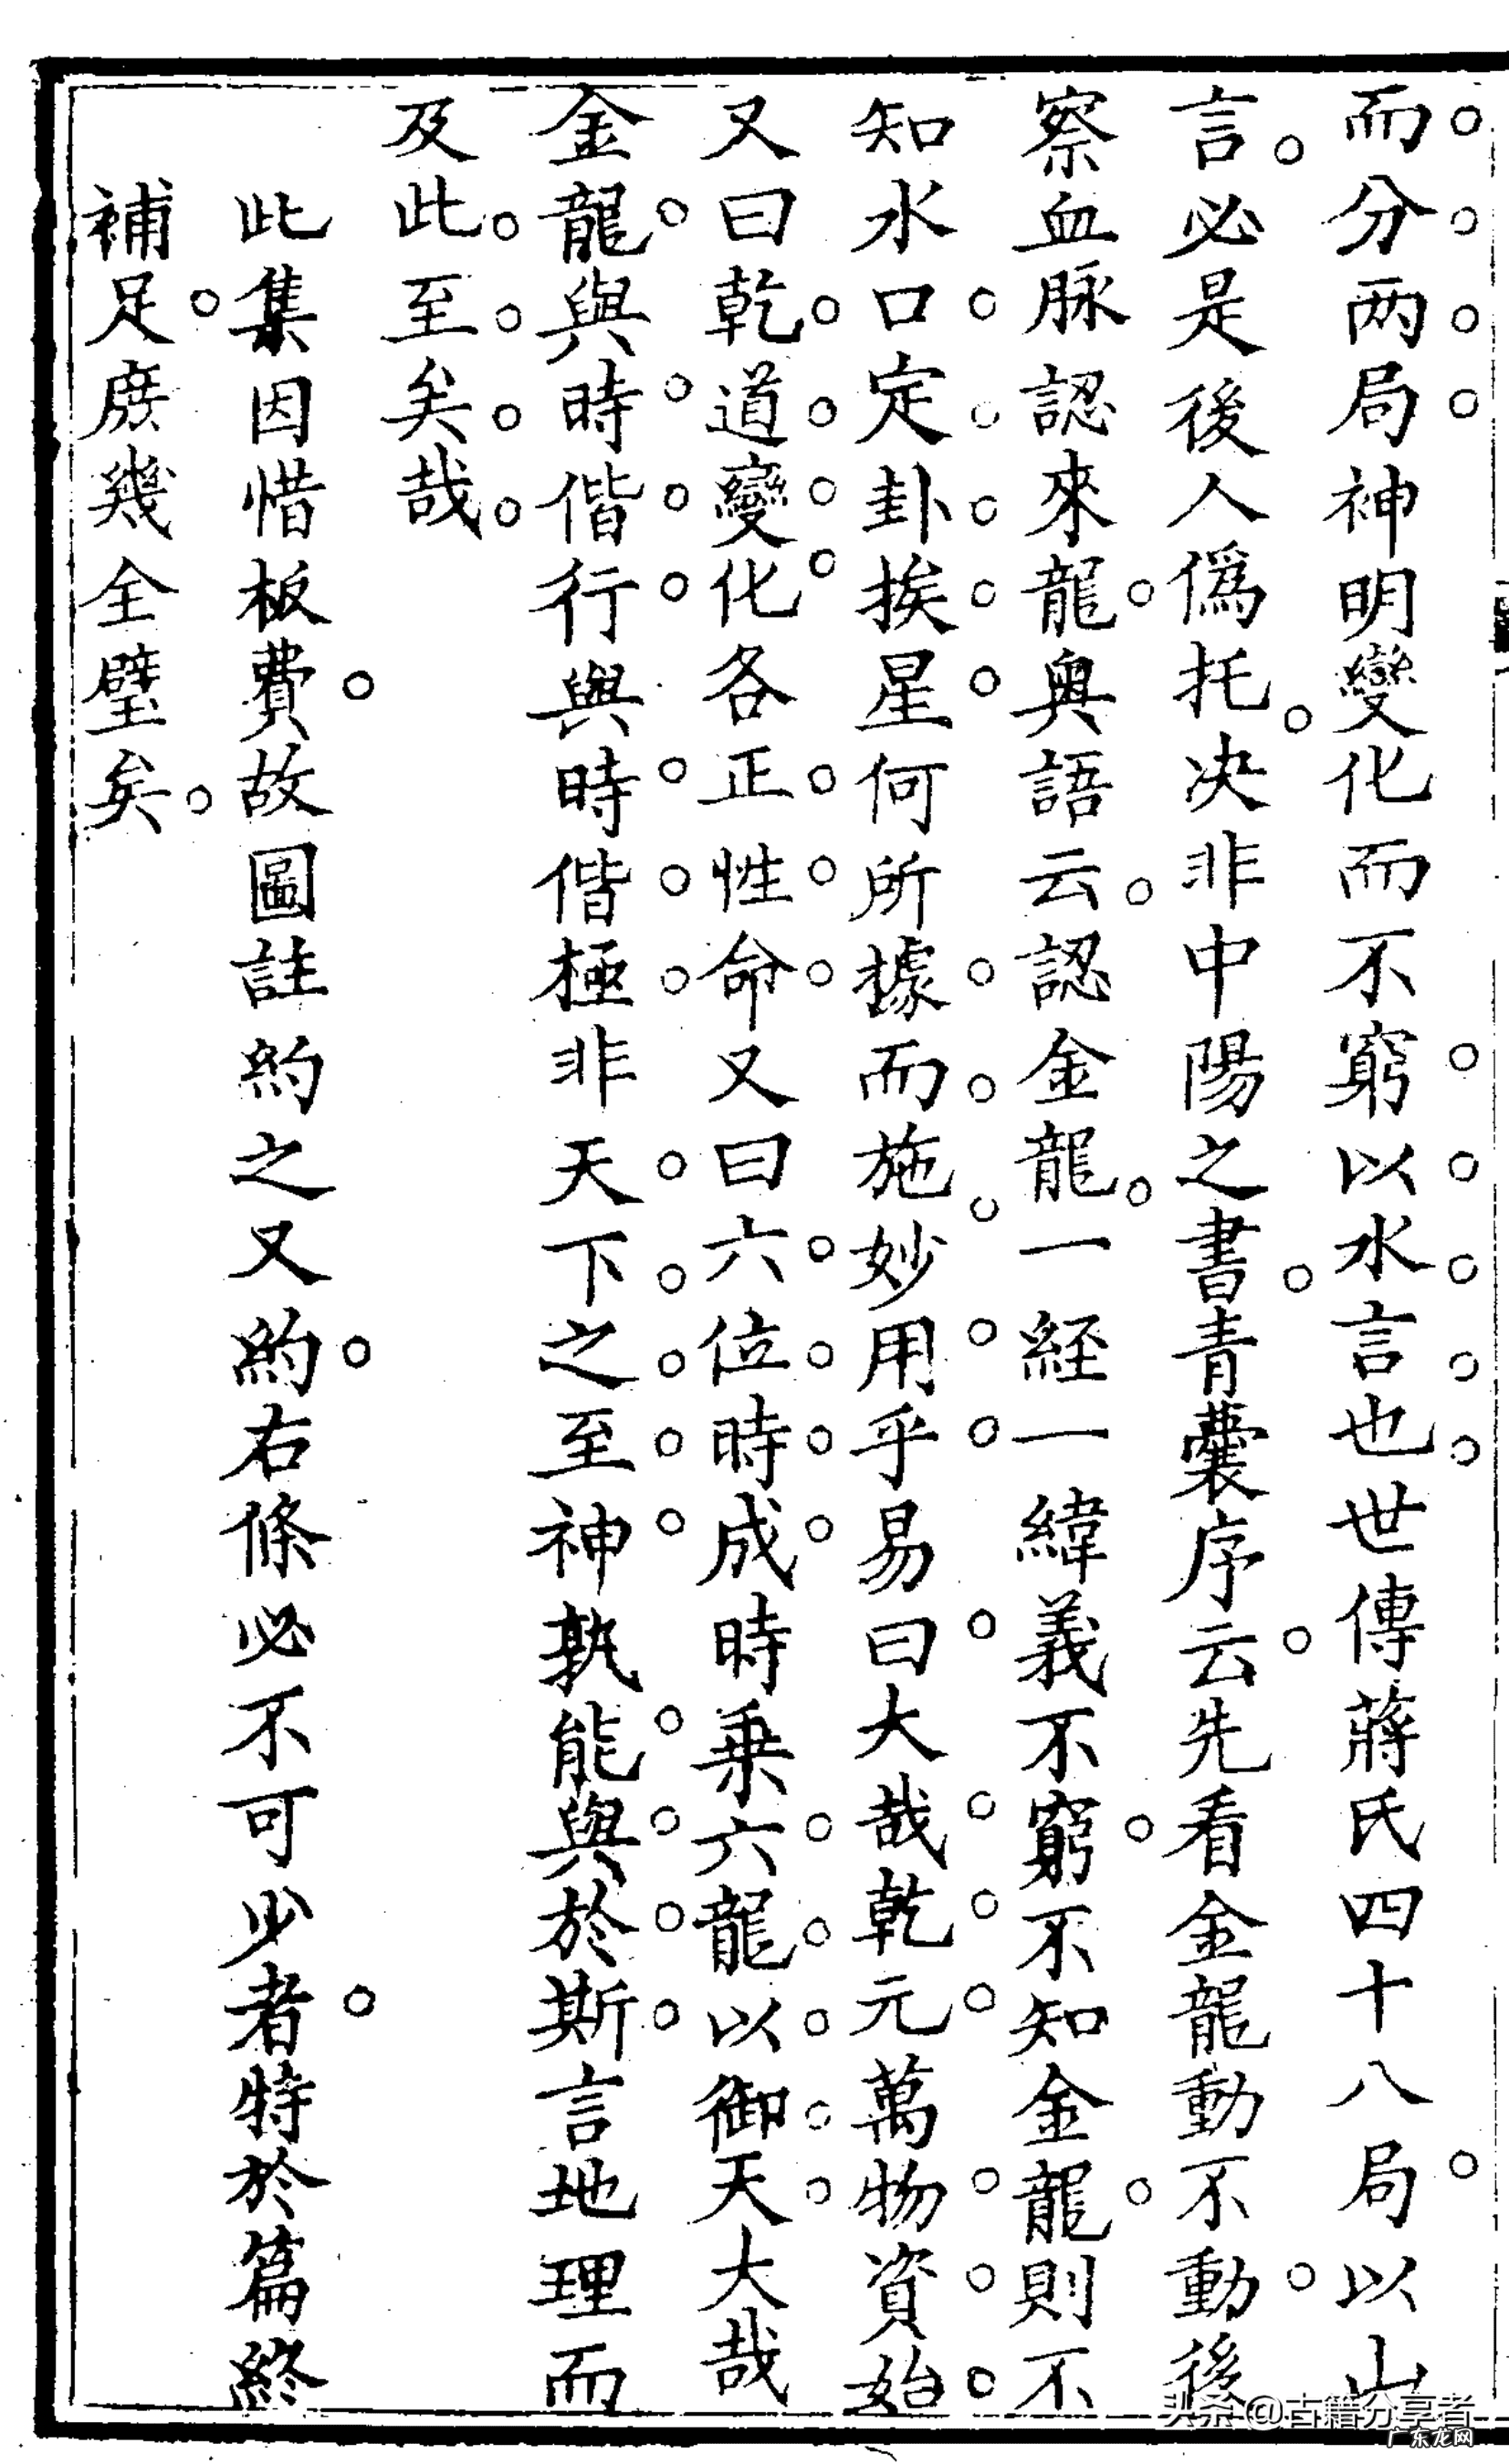 而分两局神明變化而不窮以水言也世傳蔣氏四十八局以山
言必是後人僞托决非中陽之書青囊序云先看金龍動不動後
察血脉認來龍奥語云認金龍一經一緯義不窮不知金龍則不
知水口定卦挨星何所據而施妙用乎易曰大哉乾元萬物資始
又曰乾道變化各正性命又曰六位時成時乗六龍以御天大哉
金龍與時偕行與時偕極非天下之至神孰能與於斯言地理而
及此至矣哉
此集因惜板費故圖註約之又約右條必不可少者特於篇終
補足庶幾全璧矣
头条@古籍分享者
广东龙网